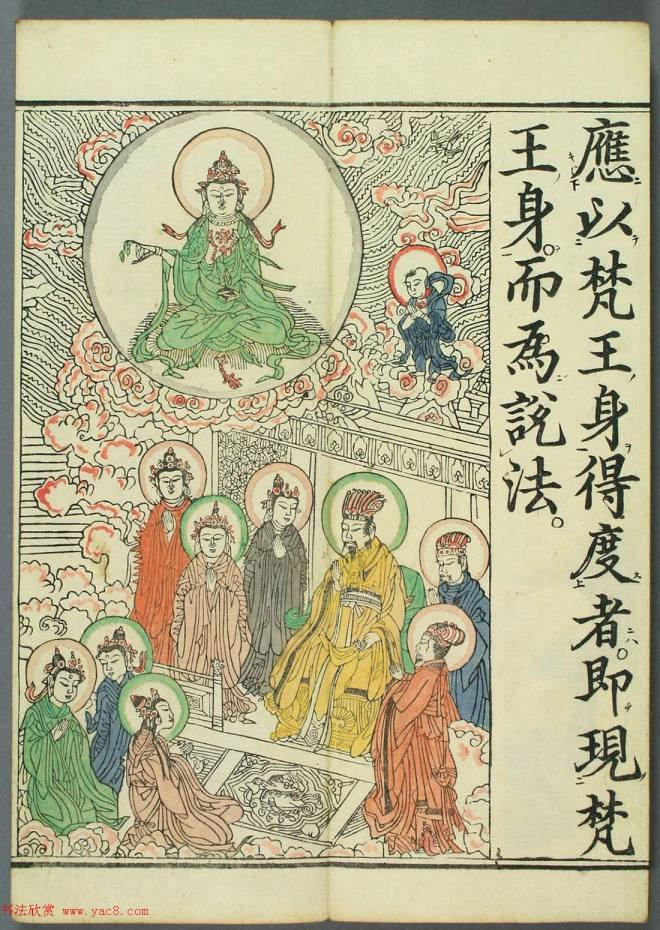 應以梵王身得度者即現梵
王身而為說法。
书法欣赏 www.yac8.com